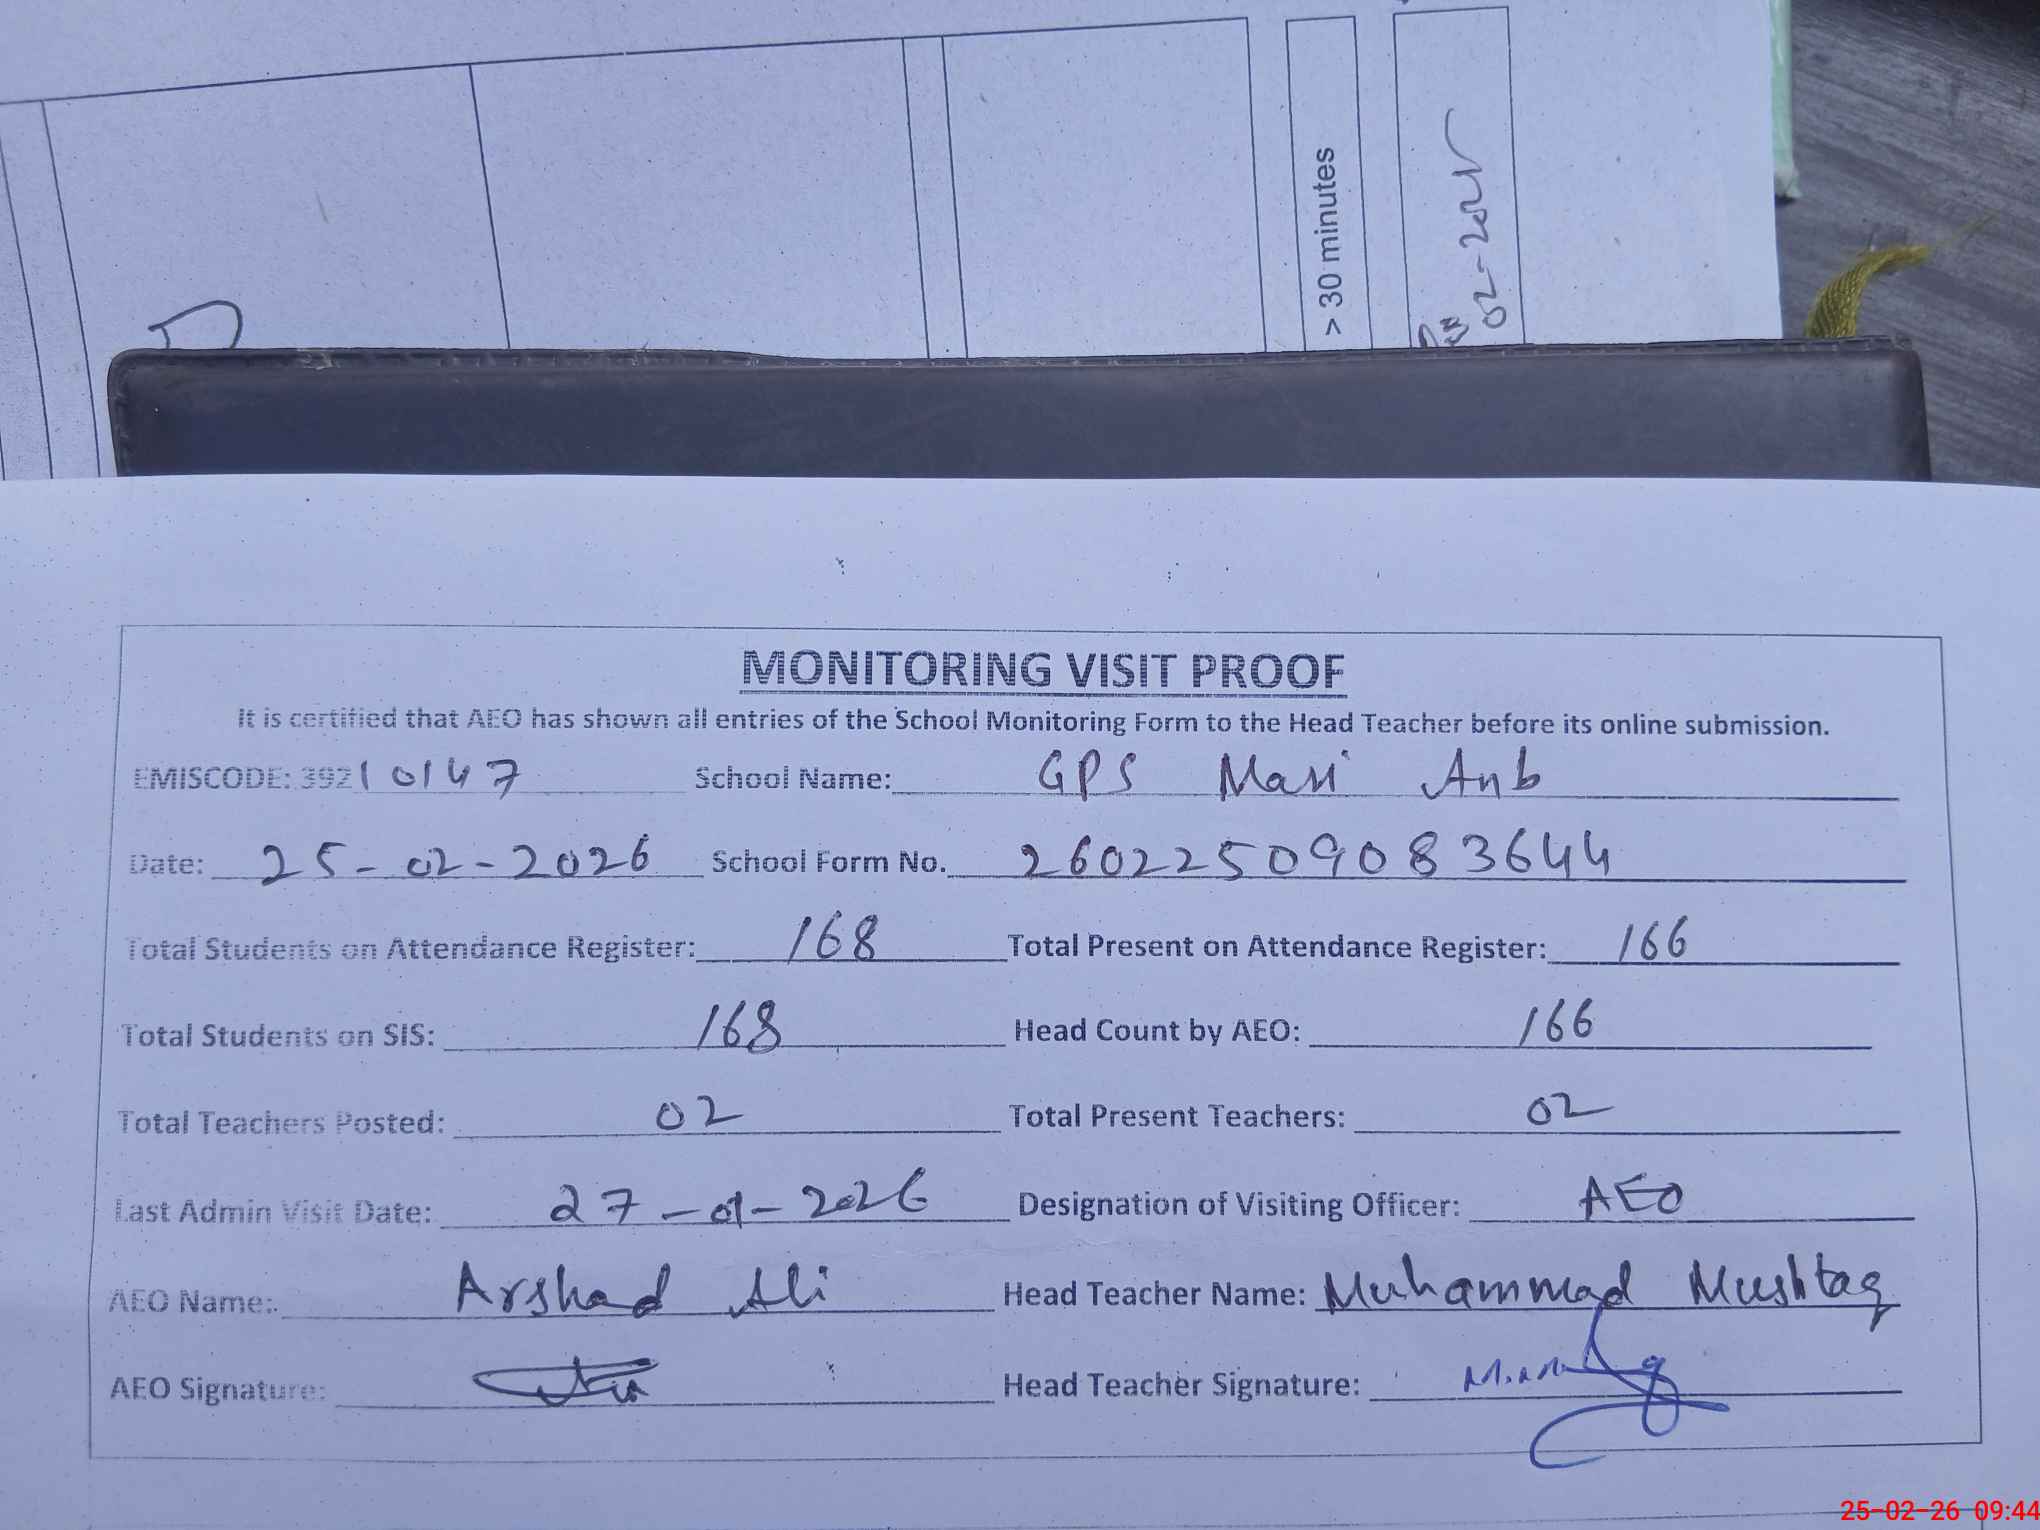 > 30 minutes
02-202
MONITORING VISIT PROOF
It is certified that AEO has shown all entries of the School Monitoring Form to the Head Teacher before its online submission.
EMISCODE: 39210147 School Name: GPS Masi Anb
Date: 25-02-2026 School Form No. 26022509083644
Total Students on Attendance Register: 168 Total Present on Attendance Register: 166
Total Students on SIS: 168 Head Count by AEO: 166
Total Teachers Posted: 02 Total Present Teachers: 02
Last Admin Visit Date: 27-01-2026 Designation of Visiting Officer: AEO
AEO Name: Arshad Ali Head Teacher Name: Muhammad Mushtaq
AEO Signature: Head Teacher Signature:
25-02-26 09:44